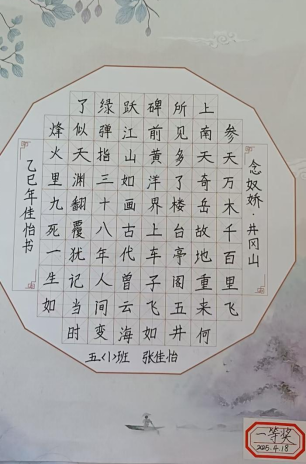 念奴娇·井冈山
参天万木千百里飞
上南天奇岳故地重来何
所见多了楼台亭阁五井
碑前黄洋界上车子飞如
跃江山如画古代曾云海
绿弹指三十八年人间变
了似天渊翻覆犹记当时
烽火里九死一生如
乙巳年佳怡书
五〈1〉班 张佳怡
一等奖
2025.4.18